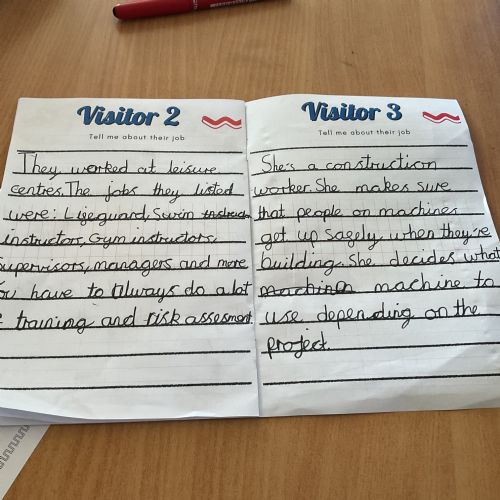 Visitor 2
Tell me about their job
They worked at leisure
centres. The jobs they listed
were: Lifeguard, Swim instruct
instructors, Gym instructors,
supervisors, managers and more
You have to always do a lot
training and risk assesment.
Visitor 3
Tell me about their job
She's a construction
worker. She makes sure
that people on machines
get up safely, when they're
building. She decides what
machine machine to
use depending on the
project.